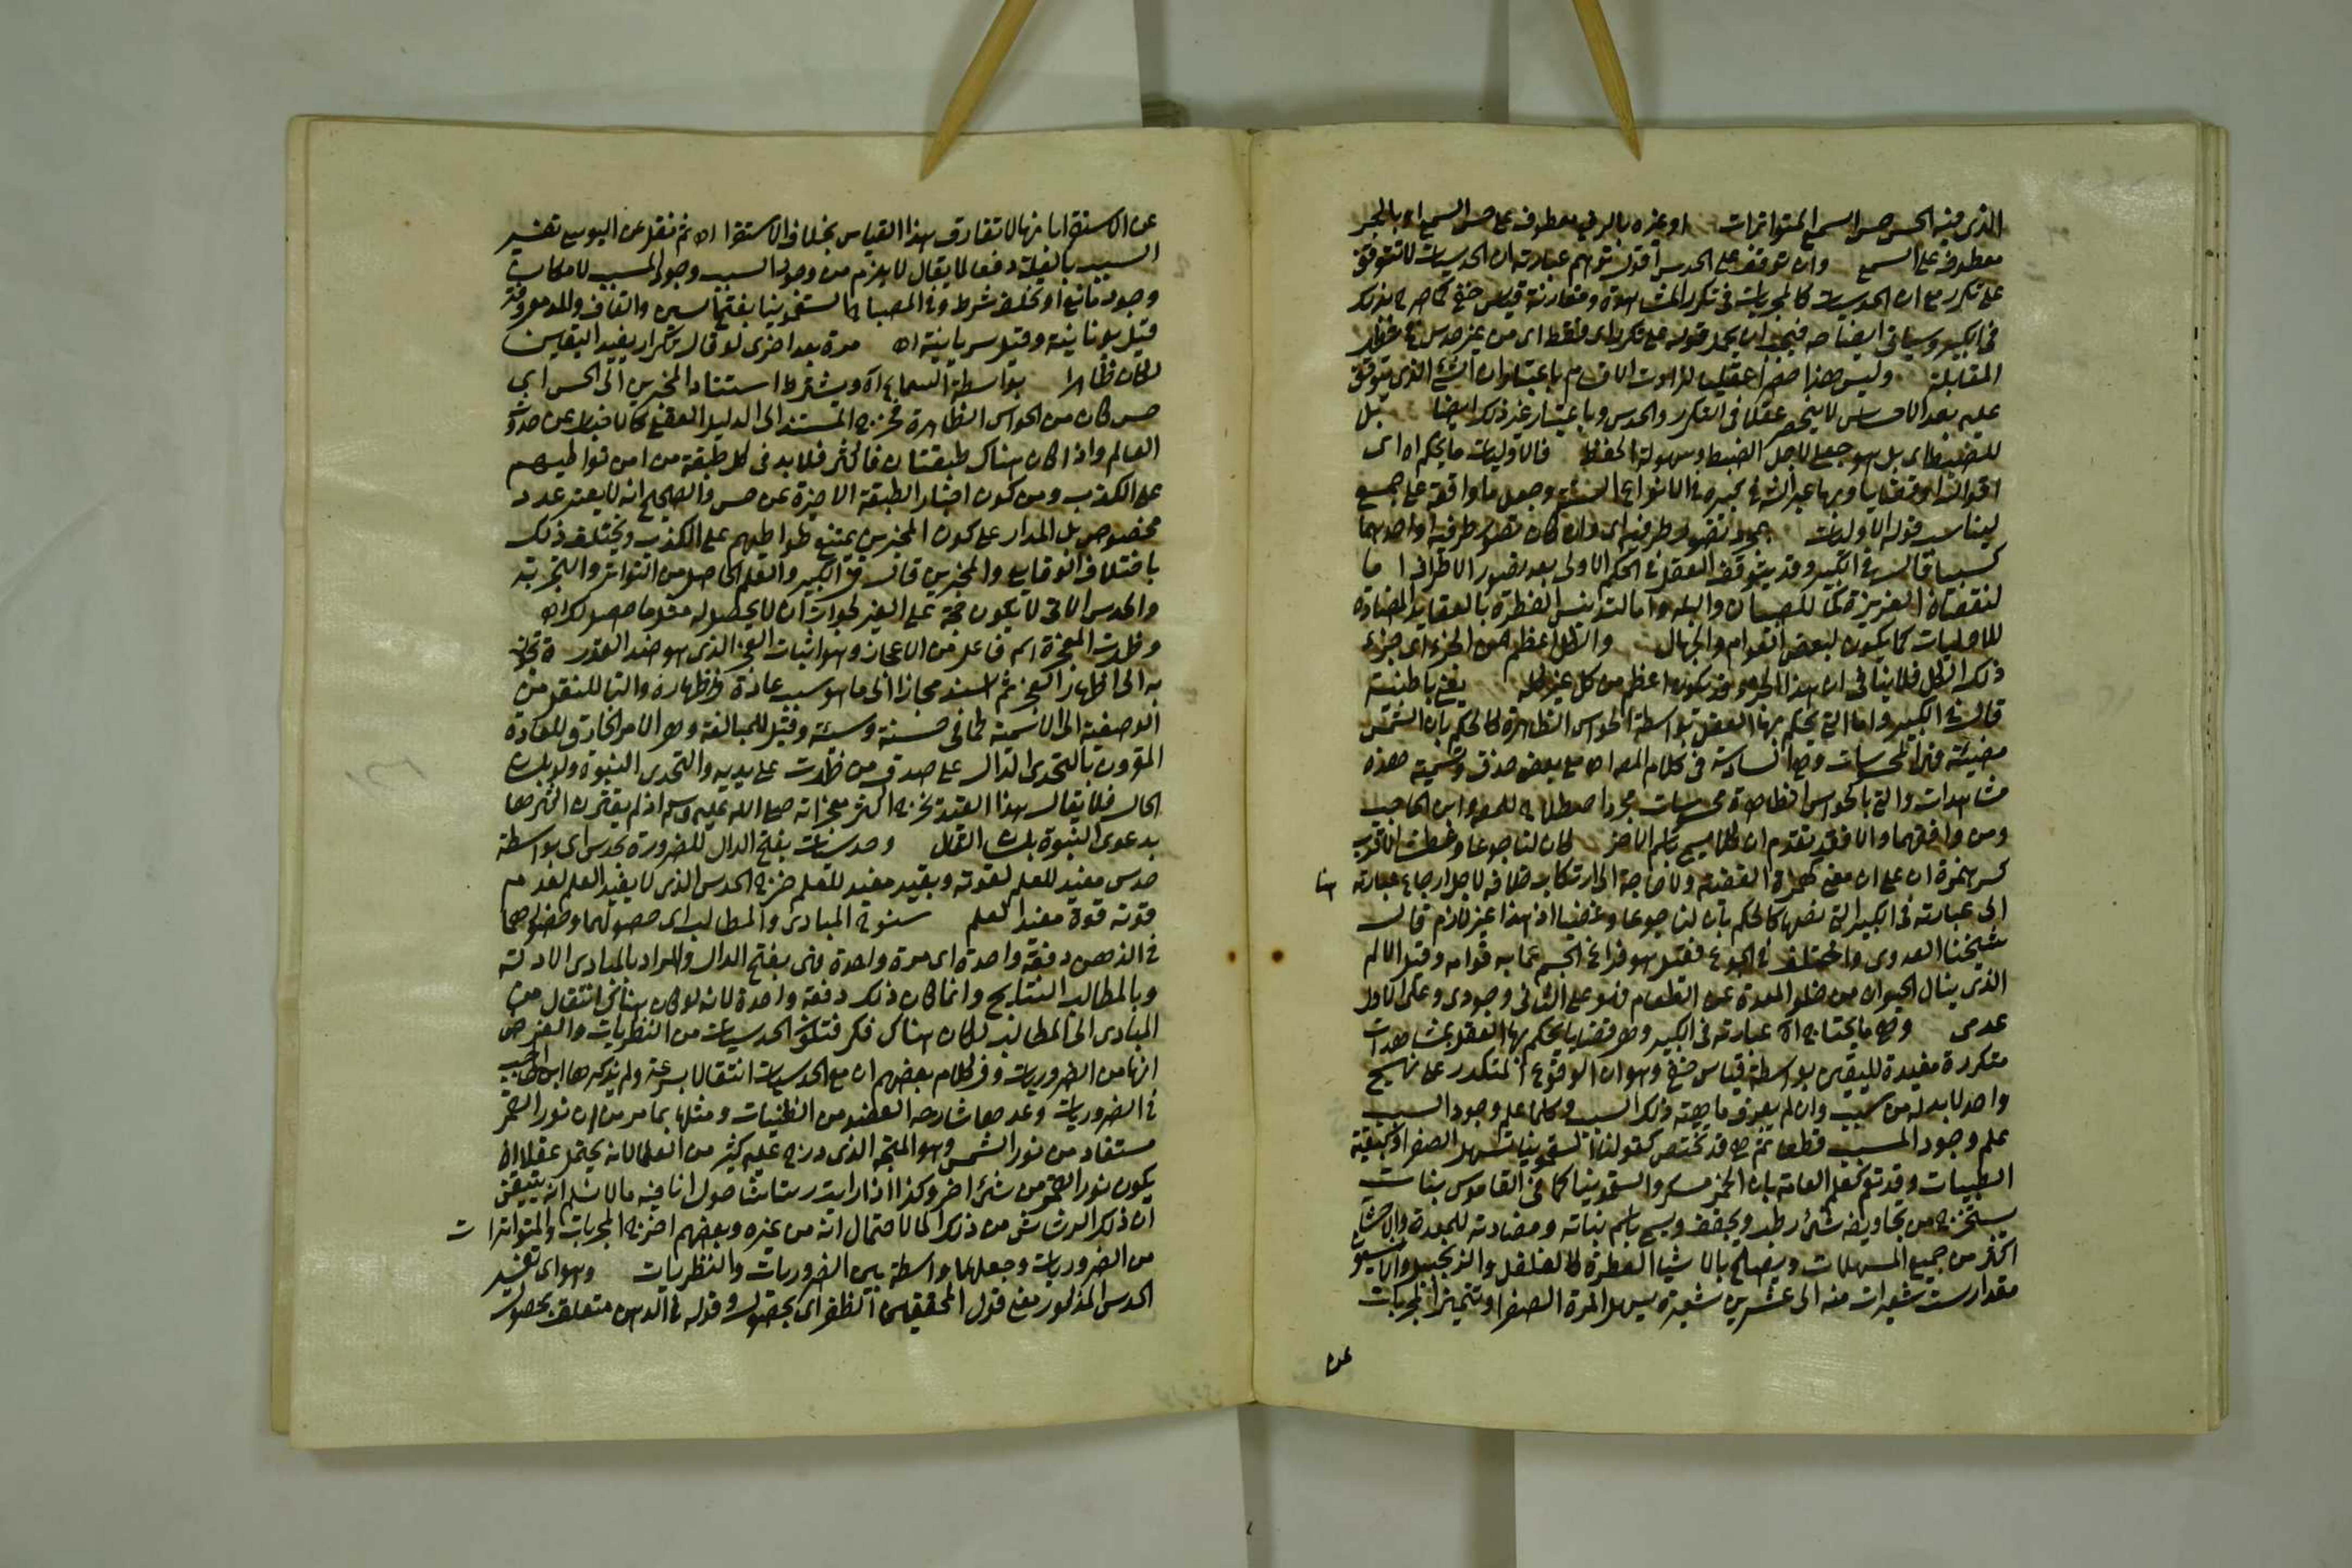 الذى فيه الحس حس السمع المتواترات او غيره بالرفع معطوف على حس السمع او بالجر
معطوف على السمع وان توقف على الحدس اقول توهم عبارته ان الحدسيات لا تتوقف
على تكرر مع ان الحدسيات كالمجربات فى تكرر المشاهدة ومقارنة قياس خفى كما صرح بذلك
فى الكبير وسياتى ايضا فيجب ان يحمل قوله مع تكرر اى فقط اى من غير حدس
المقابلة وليس هذا حصرا عقليا باعتبار ان الشئ الذى يتوقف
عليه بعد الاحساس لا ينحصر عقلا فى التكرر والحدس وباعتبار غير ذلك ايضا بل
للضبط اى بل هو جعلى لاجل الضبط وسهولة الحفظ فالاوليات ما يحكم اه اى
وجعل ما واقعة على جميع
ليناسب قوله الاوليات بمجرد تصور طرفيه اى وان كان تصور طرفيه او احدهما
كسبيا قال فى الكبير وقد يتوقف العقل فى الحكم الاولى بعد تصور الاطراف اما
لنقصان الغريزة كما للصبيان والبله واما لتدنس الفطرة بالعقايد المضادة
للاوليات كما يكون لبعض العوام والجهال والكل اعظم من الجزء اى جزء
ذلك الكل فلا ينافى ان هذا الجزء قد يكون اعظم من كل غير كله يعنى باطنية
قال فى الكبير واما التى يحكم بها العقل بواسطة الحواس الظاهرة كالحكم بان الشمس
مضيئة فمن الحسيات وهى السادسة فى كلام المص اه مع بعض حذف وتسمية هذه
مشاهدات والتى بالحواس الظاهرة محسيات مجرد اصطلاح للمص وابن الحاجب
ومن وافقهما والا فقد تقدم ان كلا يسمى باسم الاخر كان لنا جوعا وعطشا الاقرب
كسر همزة ان على ان معنى القضية ولا حاجة الى ارتكاب خلافه لاجل ارجاع عبارته هنا
الى عبارته فى الكبير التى نصها كالحكم بان لنا جوعا وغضبا اذ هذا غير لازم قال
شيخنا العدوى واختلف فى الجوع فقيل هو فراغ الجسم عما به قوامه وقيل الالم
الذى ينال الحيوان من خلو المعدة عن الطعام فهو على الثانى وجودى وعلى الاول
عدمى وهى ما يحتاج اه عبارته فى الكبير وهى قضايا يحكم بها العقل بمشاهدات
متكررة مفيدة لليقين بواسطة قياس خفى وهو ان الوقوع المتكرر على نهج
واحد لا بد له من سبب وان لم يعرف ماهية ذلك السبب وكلما علم وجود السبب
علم وجود المسبب قطعا ثم هى قد تختص كقولنا السقمونيا تسهل الصفرا كبقية
الطبيات وقد تعم كعلم العامة بان الخمر مسكر والسقمونيا كما فى القاموس نبات
يستخرج من تجاويفه شئ رطب ويجفف ويسمى باسم نباته ومضادته للمعدة والاحشا
اكثر من جميع المسهلات ويصلح بالاشيا العطرة كالفلفل والزنجبيل والانيسون
مقدار ست شعيرات منه الى عشرين شعيرة يسهل المرة الصفرا وتتميز المجربات
عن
عن الاستقرا بانها لا تفارق هذا القياس بخلاف الاستقرا اه ثم نقل عن اليوسى تفسير
السبب بالعلة دفعا لما يقال لا يلزم من وجود السبب وجود المسبب لامكان
وجود مانع او تخلف شرط وفى المصباح السقمونيا بفتح السين والقاف والمد معروفة
قيل يونانية وقيل سريانية اه مرة بعد اخرى لو قال بتكرار يفيد اليقين
لكان ظاهرا بواسطة السماع اه ويشترط استناد المخبرين الى الحس اى
حس كان من الحواس الظاهرة فخرج المستند الى الدليل العقلى كالاخبار عن حدوث
العالم واذا كان هناك طبقتان فاكثر فلا بد فى كل طبقة من امن تواطيهم
على الكذب ومن كون اخبار الطبقة الاخيرة عن حس والصحيح انه لا يعتبر عدد
مخصوص بل المدار على كون المخبرين يمتنع تواطيهم على الكذب ويختلف ذلك
باختلاف الوقايع والمخبرين قال فى الكبير والعلم الحاصل من التواتر والتجربة
والحدس الاتى لا يكون حجة على الغير لجواز ان لا يحصل له مثل ما حصل لك اه
وظهرت المعجزة اسم فاعل من الاعجاز وهو اثبات العجز الذى هو ضد القدرة تجوز
به الى اظهار العجز ثم اسند مجازا الى ما هو سبب عادة فى اظهاره والتا للنقل من
الوصفية الى الاسمية كما فى حسنة وسيئة وقيل للمبالغة وهى الامر الخارق للعادة
المقرون بالتحدى الدال على صدق من ظهرت على يديه والتحدى النبوة ولو بلسان
الحال فلا يقال هذا القيد يخرج اكثر معجزاته صلى الله عليه وسلم اذ لم يقترن اكثرها
بدعوى النبوة بلسان القال وحدسيات بفتح الدال للضرورة بحدس اى بواسطة
حدس مفيد للعلم لقوته وبقيد مفيد للعلم خرج الحدس الذى لا يفيد العلم لعدم
قوته قوة مفيد العلم سنوح المبادى والمطالب اى حصولهما وحضورهما
فى الذهن دفعة واحدة اى مرة واحدة فهى بفتح الدال والمراد بالمبادى الادلة
وبالمطالب النتايج وانما كان ذلك دفعة واحدة لانه لو كان هناك انتقال من
المبادى الى المطالب لكان هناك فكر فتكون الحدسيات من النظريات والغرض
انها من الضروريات وفى كلام بعضهم ان مع الحدسيات انتقالا بسرعة ولم يذكرها ابن الحاجب
فى الضروريات وعدها شارحه العضد من الظنيات ومثلها بما مر من ان نور القمر
مستفاد من نور الشمس وهو المتجه الذى درج عليه كثير من العلما لانه يحتمل عقلا ان
يكون نور القمر من شئ اخر وكذا اذا رايت رشاشا حول انا فيه ما لا نسلم انه يتيقن
ان ذلك الرشاش من ذلك الما لاحتمال انه من غيره وبعضهم اخرج المجربات والمتواترات
من الضروريات وجعلهما واسطة بين الضروريات والنظريات وهو اى تفسير
الحدس المذكور معنى قول المحققين الظفر اى بحصول وقوله فى الذهن متعلق بحصول